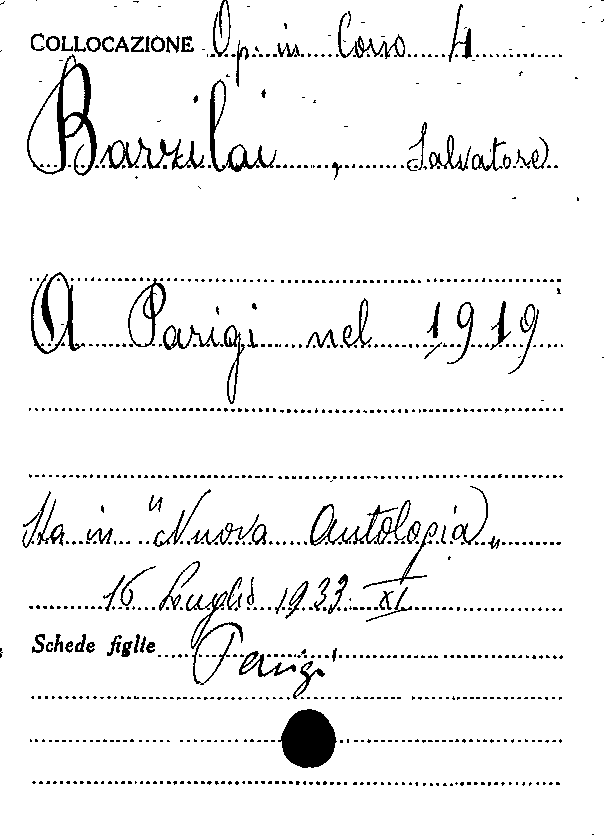 COLLOCAZIONE Op. in Corso 4
Barzilai, Salvatore
A Parigi nel 1919
Sta in "Nuova Antologia„
16 Luglio 1933. XI
Schede figlie Parigi